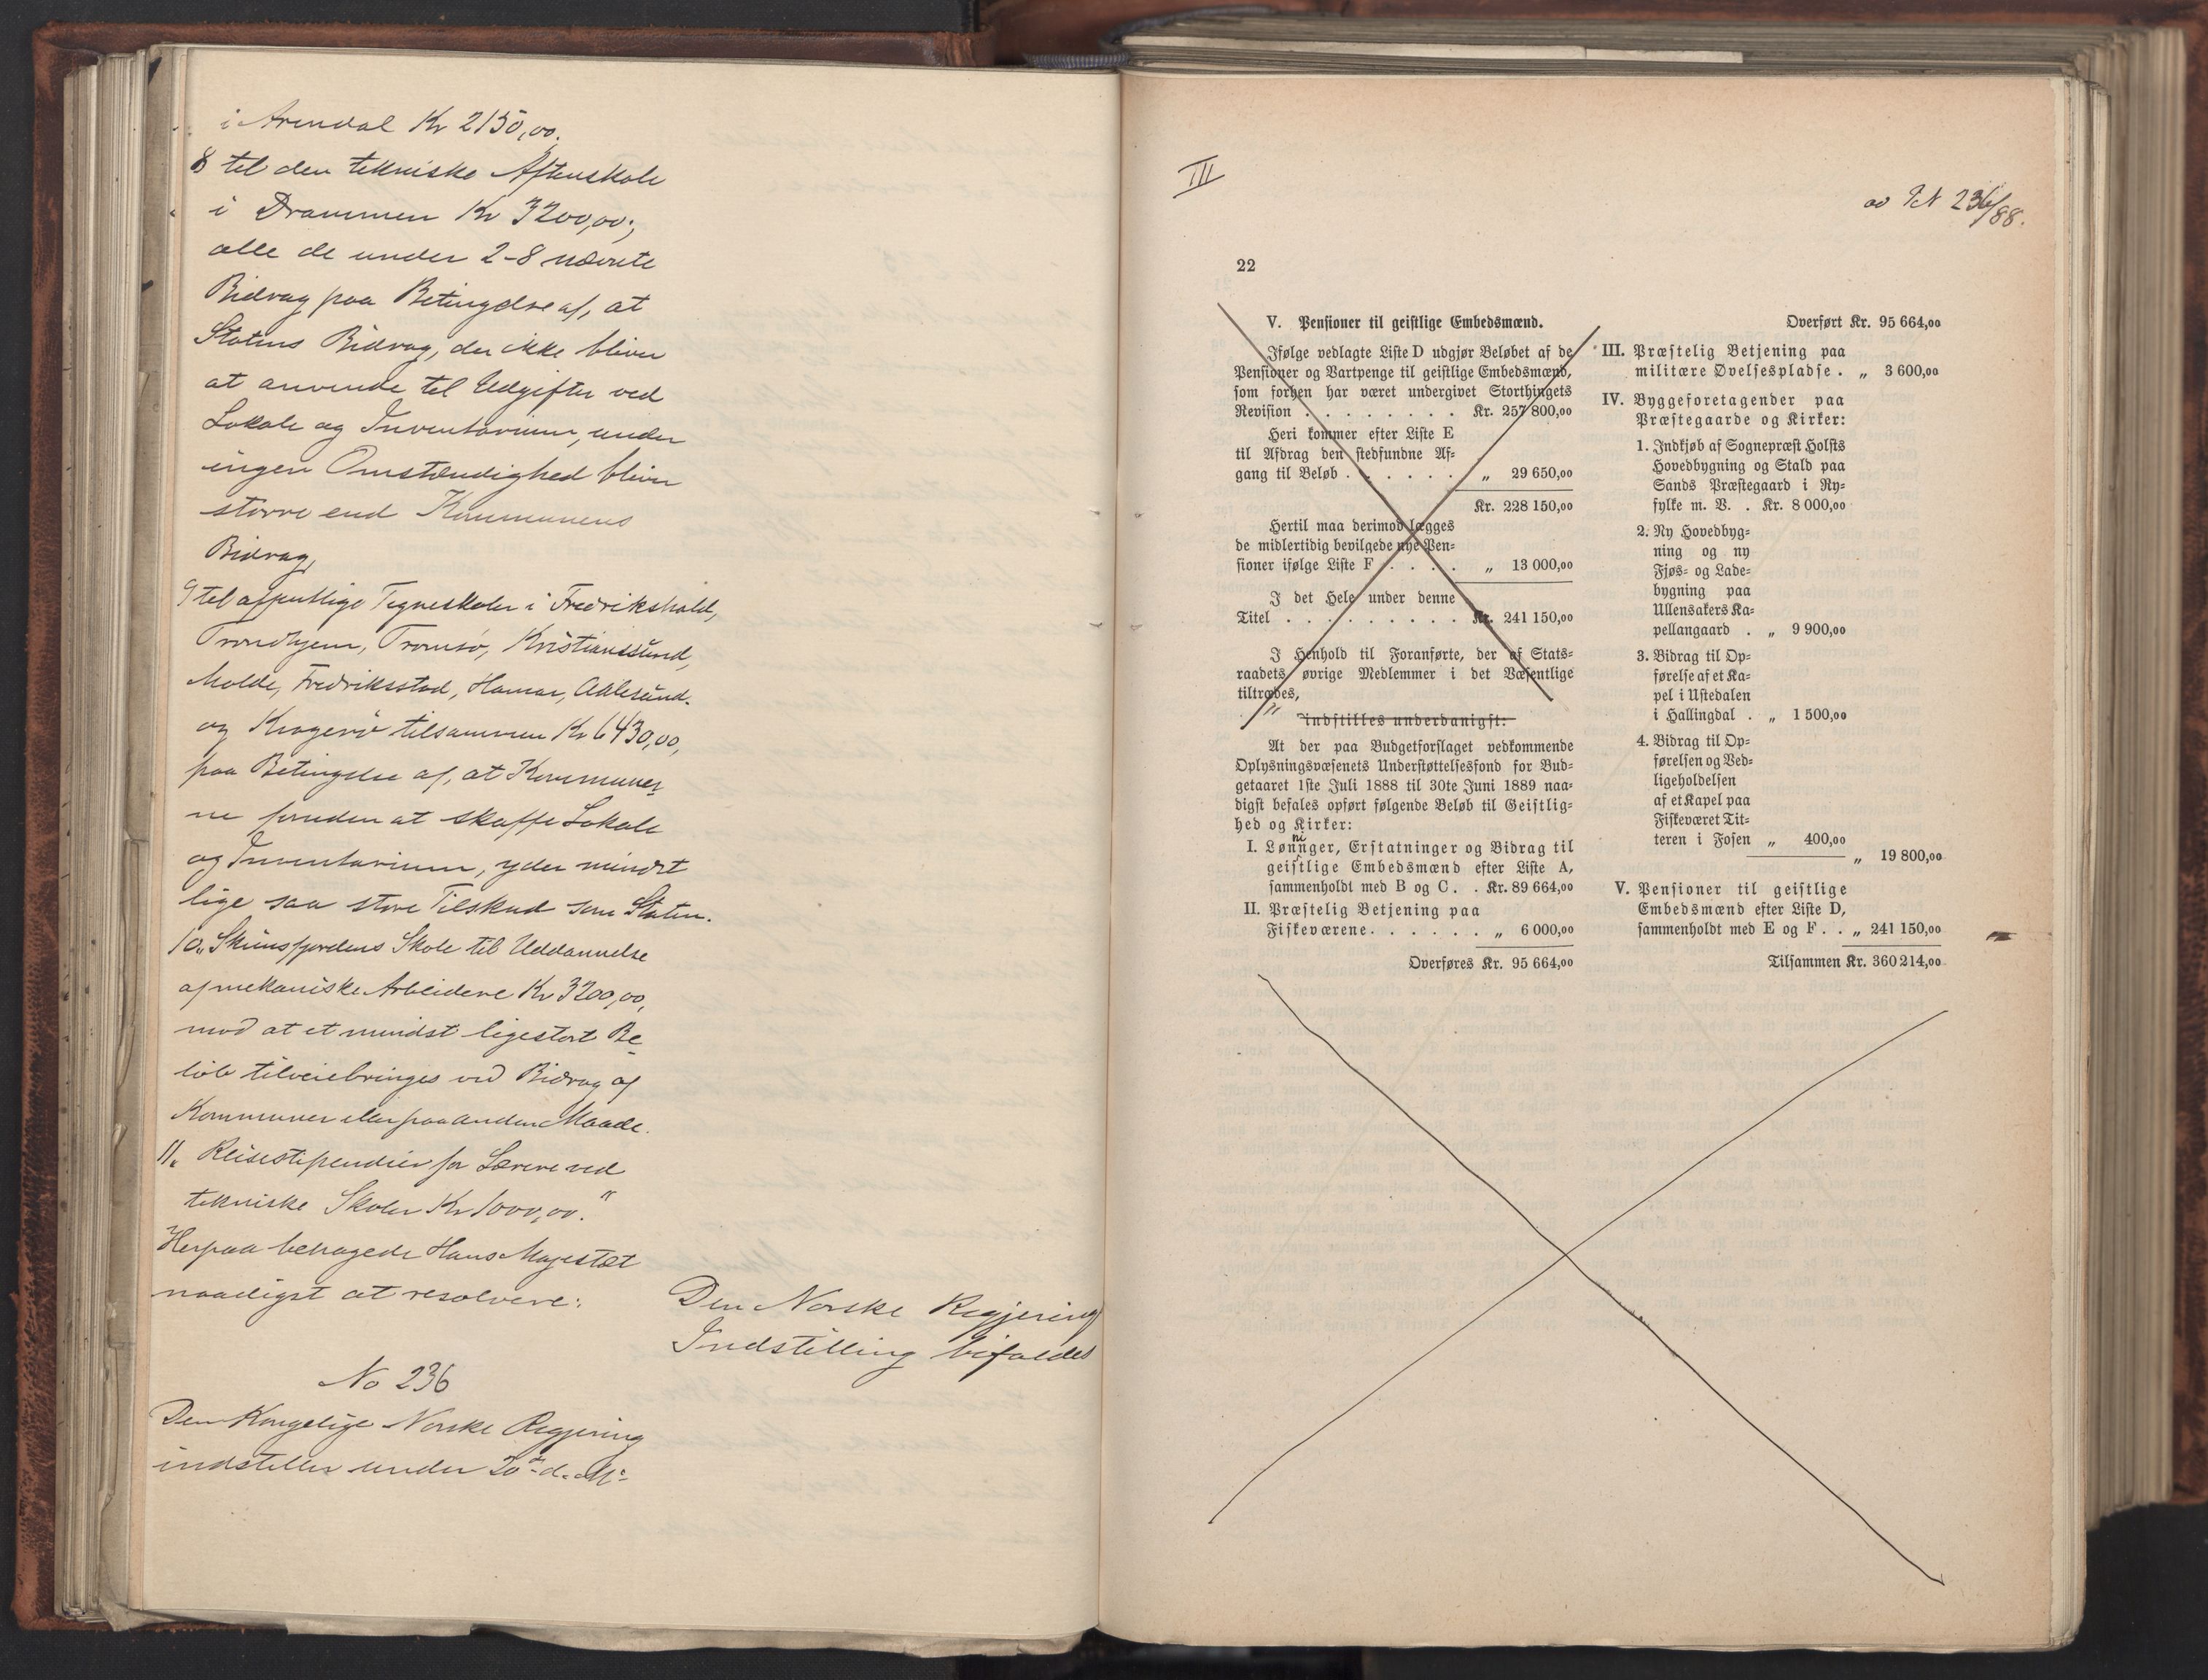 i Arendal Kr 2150,00.
8 til den tekniske Aftenskole
i Drammen Kr 3200,00;
alle de under 2-8 nævnte
Bidrag paa Betingelse af, at
Statens Bidrag, der ikke bliver
at anvende til Udgifter ved
Lokale og Inventarium, under
ingen Omstændighed bliver
større end Kommunens
Bidrag,
9 til offentlige Tegneskoler i Fredrikshald,
Trondhjem, Tromsø, Kristianssund,
Molde, Fredriksstad, Hamar, Aalesund
og Kragerø tilsammen Kr 6430,00,
paa Betingelse af, at Kommuner-
ne foruden at skaffe Lokale
og Inventarium, yder mindst
lige saa store Tilskud som Staten.
10. Skiensfjordens Skole til Uddannelse
af mekaniske Arbeidere Kr 3200,00,
mod at et mindst ligestort Be-
løb tilveiebringes ved Bidrag af
Kommuner eller paa anden Maade.
11. Reisestipendier for Lærere ved
tekniske Skoler Kr 1000,00."
Herpaa behagede Hans Majestæt
naadigst at resolvere:
Den Norske Regjering
Indstilling bifaldes
No 236
Den Kongelige Norske Regjering
indstiller under 20de d. M:
III
ad 236/88.
22
V. Pensioner til geistlige Embedsmænd.
Ifølge vedlagte Liste D udgjør Beløbet af de
Pensioner og Vartpenge til geistlige Embedsmænd,
som forhen har været undergivet Storthingets
Revision . . . . . . . . Kr. 257 800,00
Heri kommer efter Liste E
til Afdrag den stedfundne Af-
gang til Beløb . . . . . . „ 29 650,00
Kr. 228 150,00
Hertil maa derimod lægges
de midlertidig bevilgede nye Pen-
sioner ifølge Liste F . . . . „ 13 000,00
I det Hele under denne
Titel . . . . . . . . . Kr. 241 150,00
I Henhold til Foranførte, der af Stats-
raadets øvrige Medlemmer i det Væsentlige
tiltrædes,
indstilles underdanigst:
"At der paa Budgetforslaget vedkommende
Oplysningsvæsenets Understøttelsesfond for Bud-
getaaret 1ste Juli 1888 til 30te Juni 1889 naa-
digst befales opført følgende Beløb til Geistlig-
hed og Kirker:
I. Lønninger, Erstatninger og Bidrag til
geistlige Embedsmænd efter Liste A,
sammenholdt med B og C. . Kr. 89 664,00
II. Præstelig Betjening paa
Fiskeværene. . . . . . „ 6 000,00
Overføres Kr. 95 664,00
Overført Kr. 95 664,00
III. Præstelig Betjening paa
militære Øvelsespladse . „ 3 600,00
IV. Byggeforetagender paa
Præstegaarde og Kirker:
1. Indkjøb af Sognepræst Holsts
Hovedbygning og Stald paa
Sands Præstegaard i Ry-
fylke m. V. . Kr. 8 000,00
2. Ny Hovedbyg-
ning og ny
Fjøs- og Lade-
bygning paa
Ullensakers Ka-
pellangaard . „ 9 900,00
3. Bidrag til Op-
førelse af et Ka-
pel i Ustedalen
i Hallingdal . „ 1 500,00
4. Bidrag til Op-
førelsen og Ved-
ligeholdelsen
af et Kapel paa
Fiskeværet Tit-
teren i Fosen „ 400,00
„ 19 800,00
V. Pensioner til geistlige
Embedsmænd efter Liste D,
sammenholdt med E og F . . „ 241 150,00
Tilsammen Kr. 360 214,00